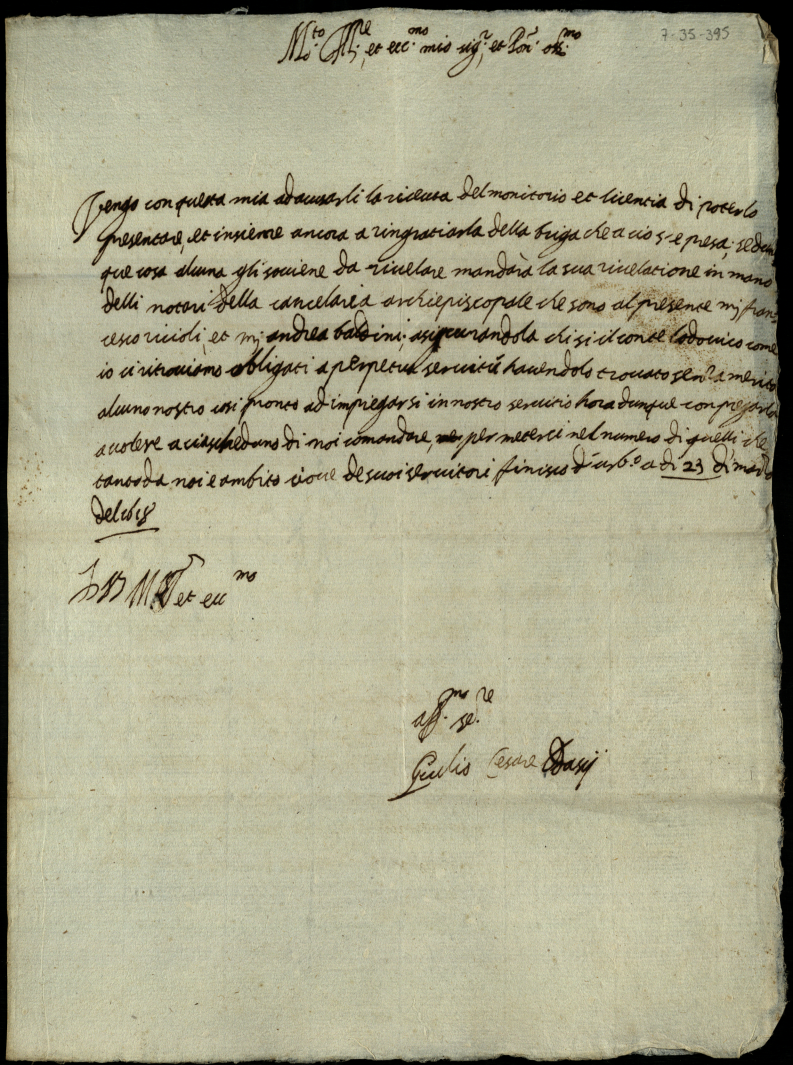 7-35-395
M.to Ill.re et ecc.mo mio sig.r et Pon.
Vengo con questa mia ad acusarli la riceuta del monitorio et licentia di poterlo
presentare, et insieme ancora a ringratiarla della briga che a ciò s'è presa; se dun
que cosa alcuna gli soviene da rivelare mandarà la sua rivelatione in mano
delli notari della cancelaria archiepiscopale che sono al presente mj fran
cesco ricioli, et mj andrea baldini, asicurandola chi si il conte lodovico come
io ci ritroviamo obbligati a perpetua servitù havendolo trovato senza merito
alcuno nostro così pronto ad impiegarsi in nostro servitio hora dunque con pregarla
a volere a ciascheduno di noi comandare, per meterci nel numero di quelli che
tanto da noi è ambito cioè de suoi servitori finisco d'urb.o a di 23 di
del 1618
Di V.S. M. Ill. et ecc.mo
aff.mo se.re
Giulio Cesare